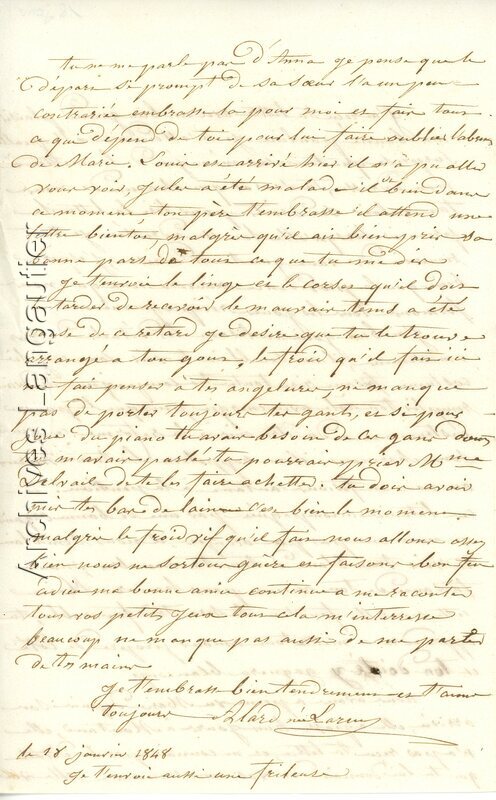 tu ne me parle pas d'Anna je pense que le
départ si prompt de sa sœur l'a un peu
contrariée embrasse la pour moi et fait tout
ce que dépend de toi pour lui faire oublier l'absence
de Marie. Louis est arrivé hier il n'a pu aller
vous voir, Jules a été malade il est bien dans
ce moment ton père t'embrasse il attend une
lettre bientôt, malgrés qu'il ait bien pris sa
bonne part de tous ce que tu me dis
je t'envoie le linge et le corset qu'il doit
tarder de recevoir le mauvais tems a été
cause de ce retard je desire que tu le trouve
arrangé a ton gout, le froid qu'il fait ici
fait penser a tes angelures, ne manque
pas de porter toujours tes gants, et si pour
du piano tu avais besoin de ces gans dont
m'avais parlé tu pourrais prier Mme
Delrail de te les faire achetter. tu dois avoir
mis tes bas de laine c'est bien le moment
malgrés le froid vif qu'il fait nous allons assez
bien nous ne sortons guère et faisons bon feu
adieu ma bonne amie continue a me raconter
tous vos petits jeux tous cela m'interresse
beaucoup ne manque pas aussi de me parler
de tes mains
Je t'embrasse bien tendrement et t'aime
toujours Alard née
de 18 janvier 1848
je t'envoie aussi une frileuse
Archives Langautier